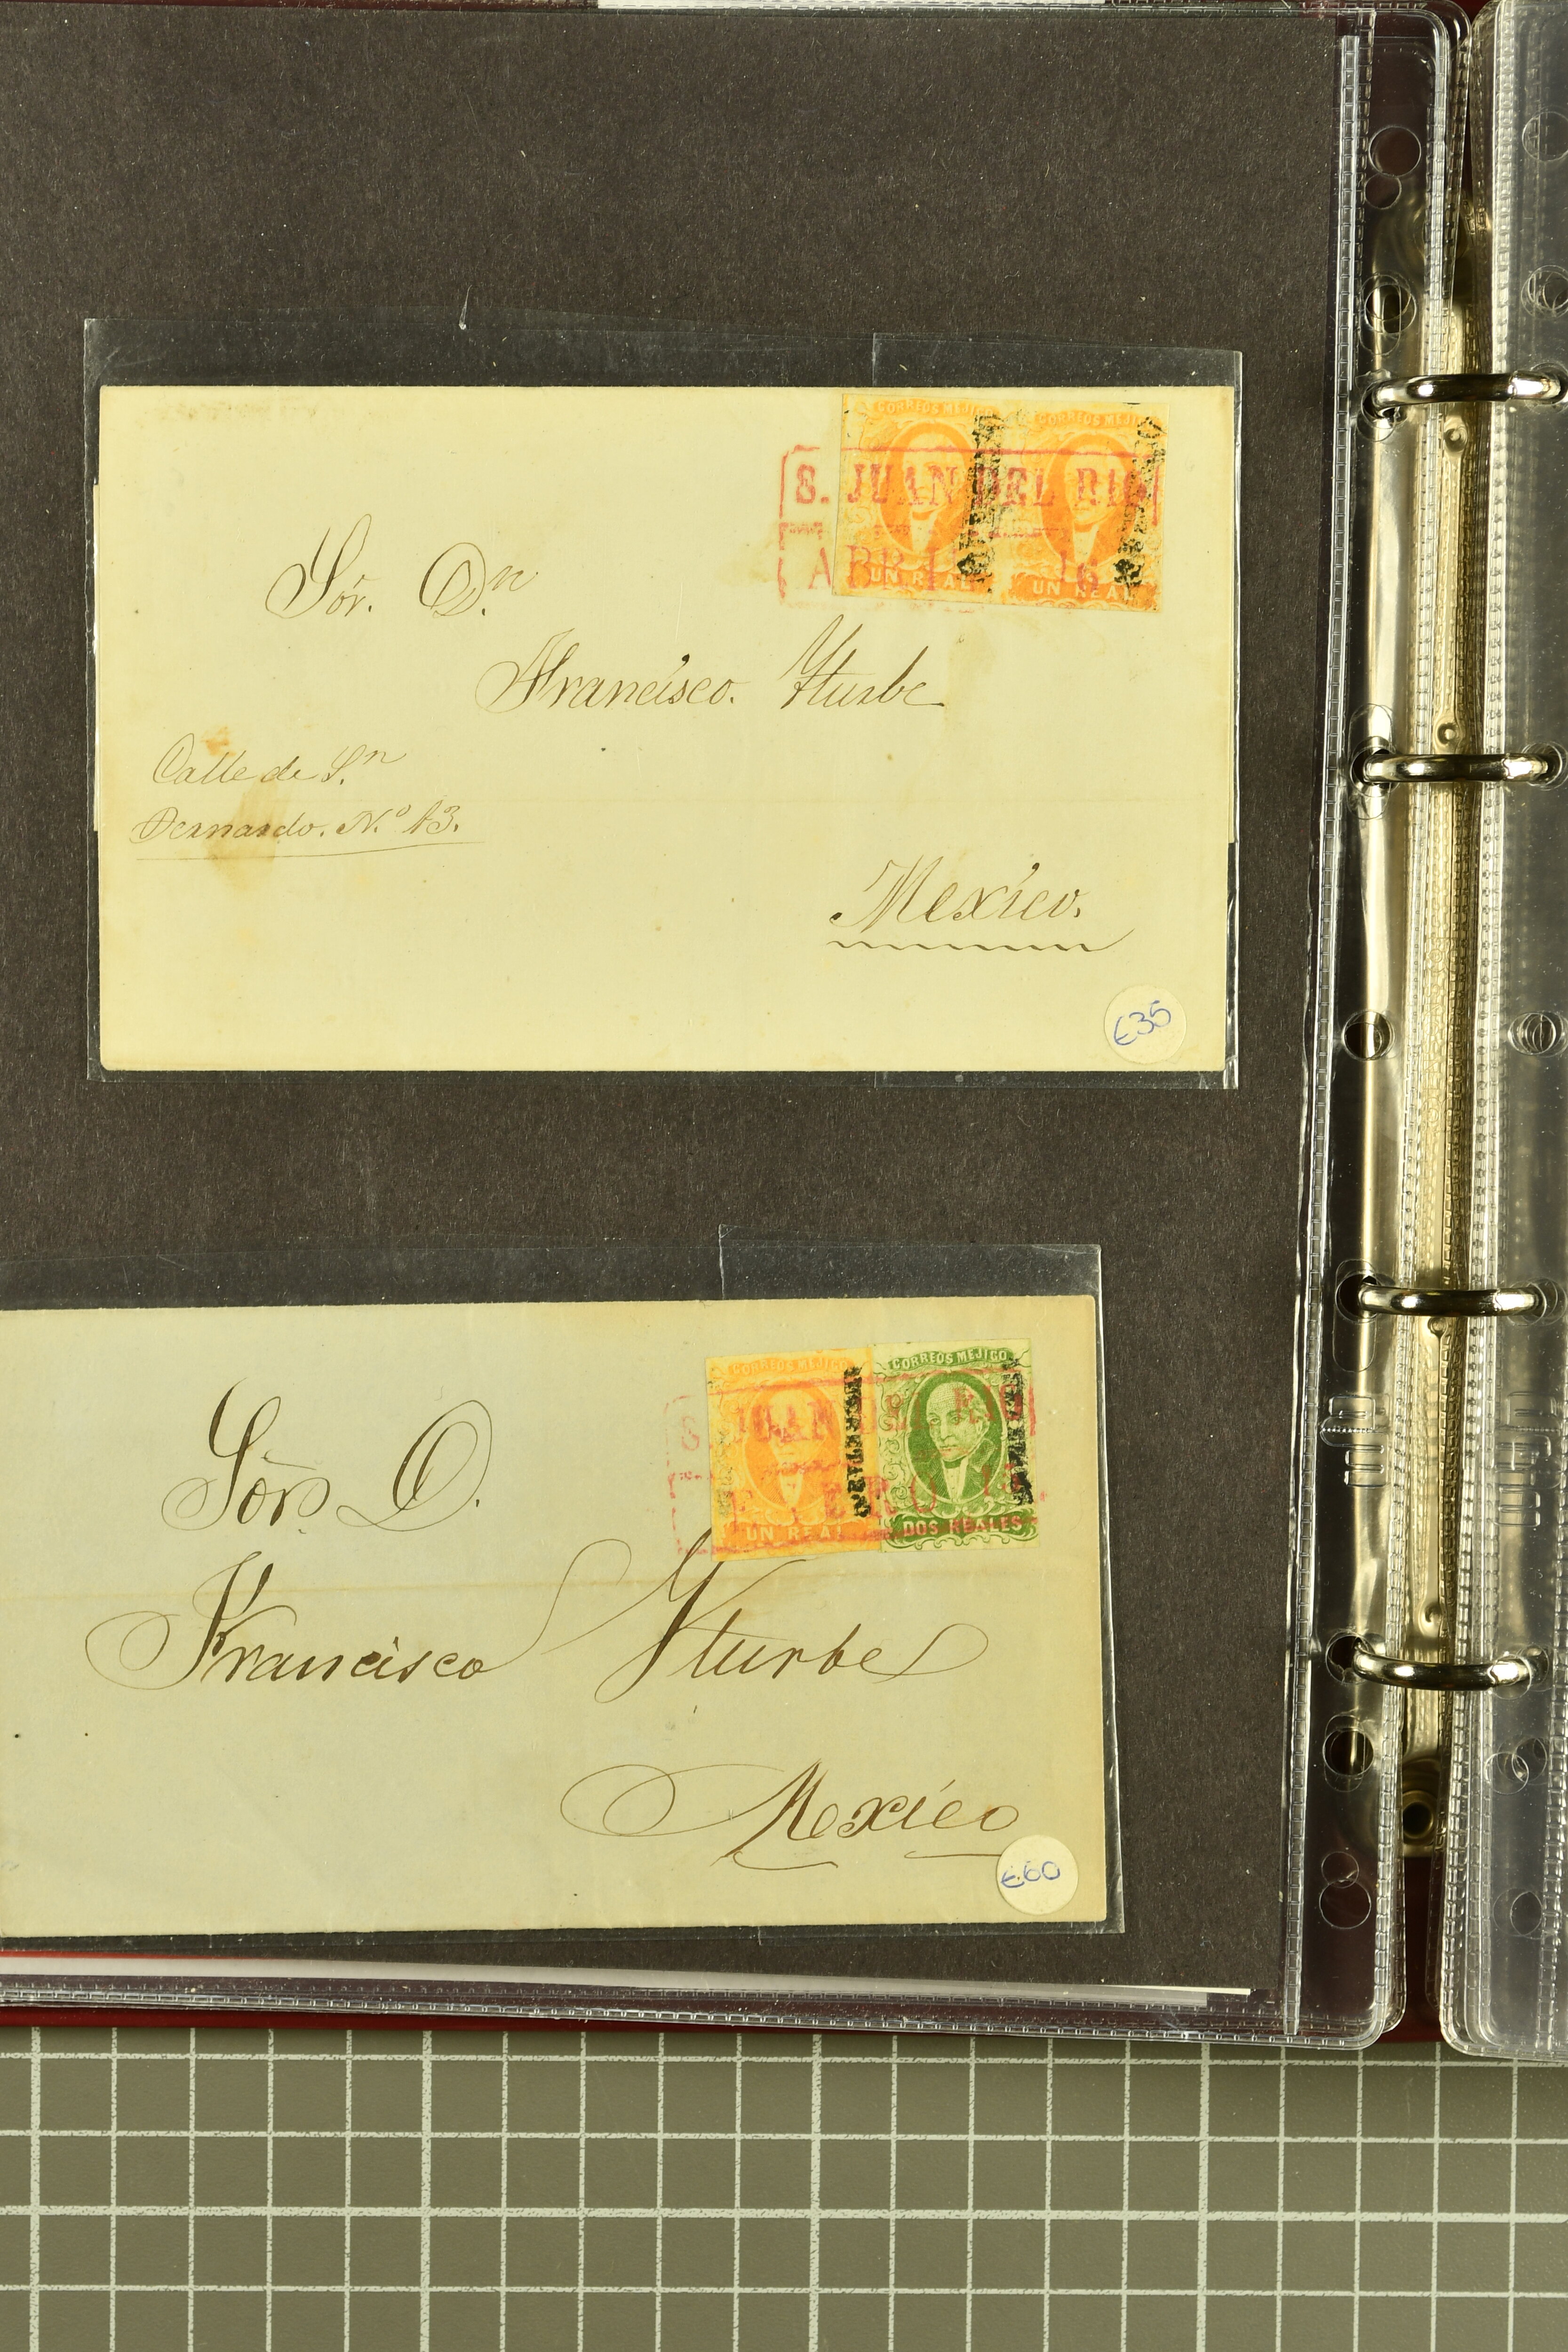 CORREOS MEJICO
CORREOS MEJICO
S. JUAN DEL RIO
ABRIL 16
UN REAL
UN REAL
Sör. D.n
Francisco. Yturbe
Calle de S.n
Bernardo. N.o 13.
Mexico.
€35
CORREOS MEJICO
CORREOS MEJICO
S. JUAN DEL RIO
15
QUERETARO
UN REAL
DOS REALES
Sör D.
Francisco Yturbe
Mexico
€60